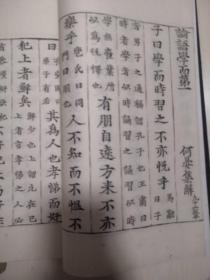 論語學而第一 何晏集解
子曰學而時習之不亦悅乎 馬融曰子
者男子之通稱謂孔子也王肅曰
時者學者以時誦習之誦習以時
學無廢業所以為悅懌也 有朋自遠方來不亦
樂乎 苞氏曰同門曰朋也 人不知而不慍不
其為人也孝悌而好
犯上者鮮矣